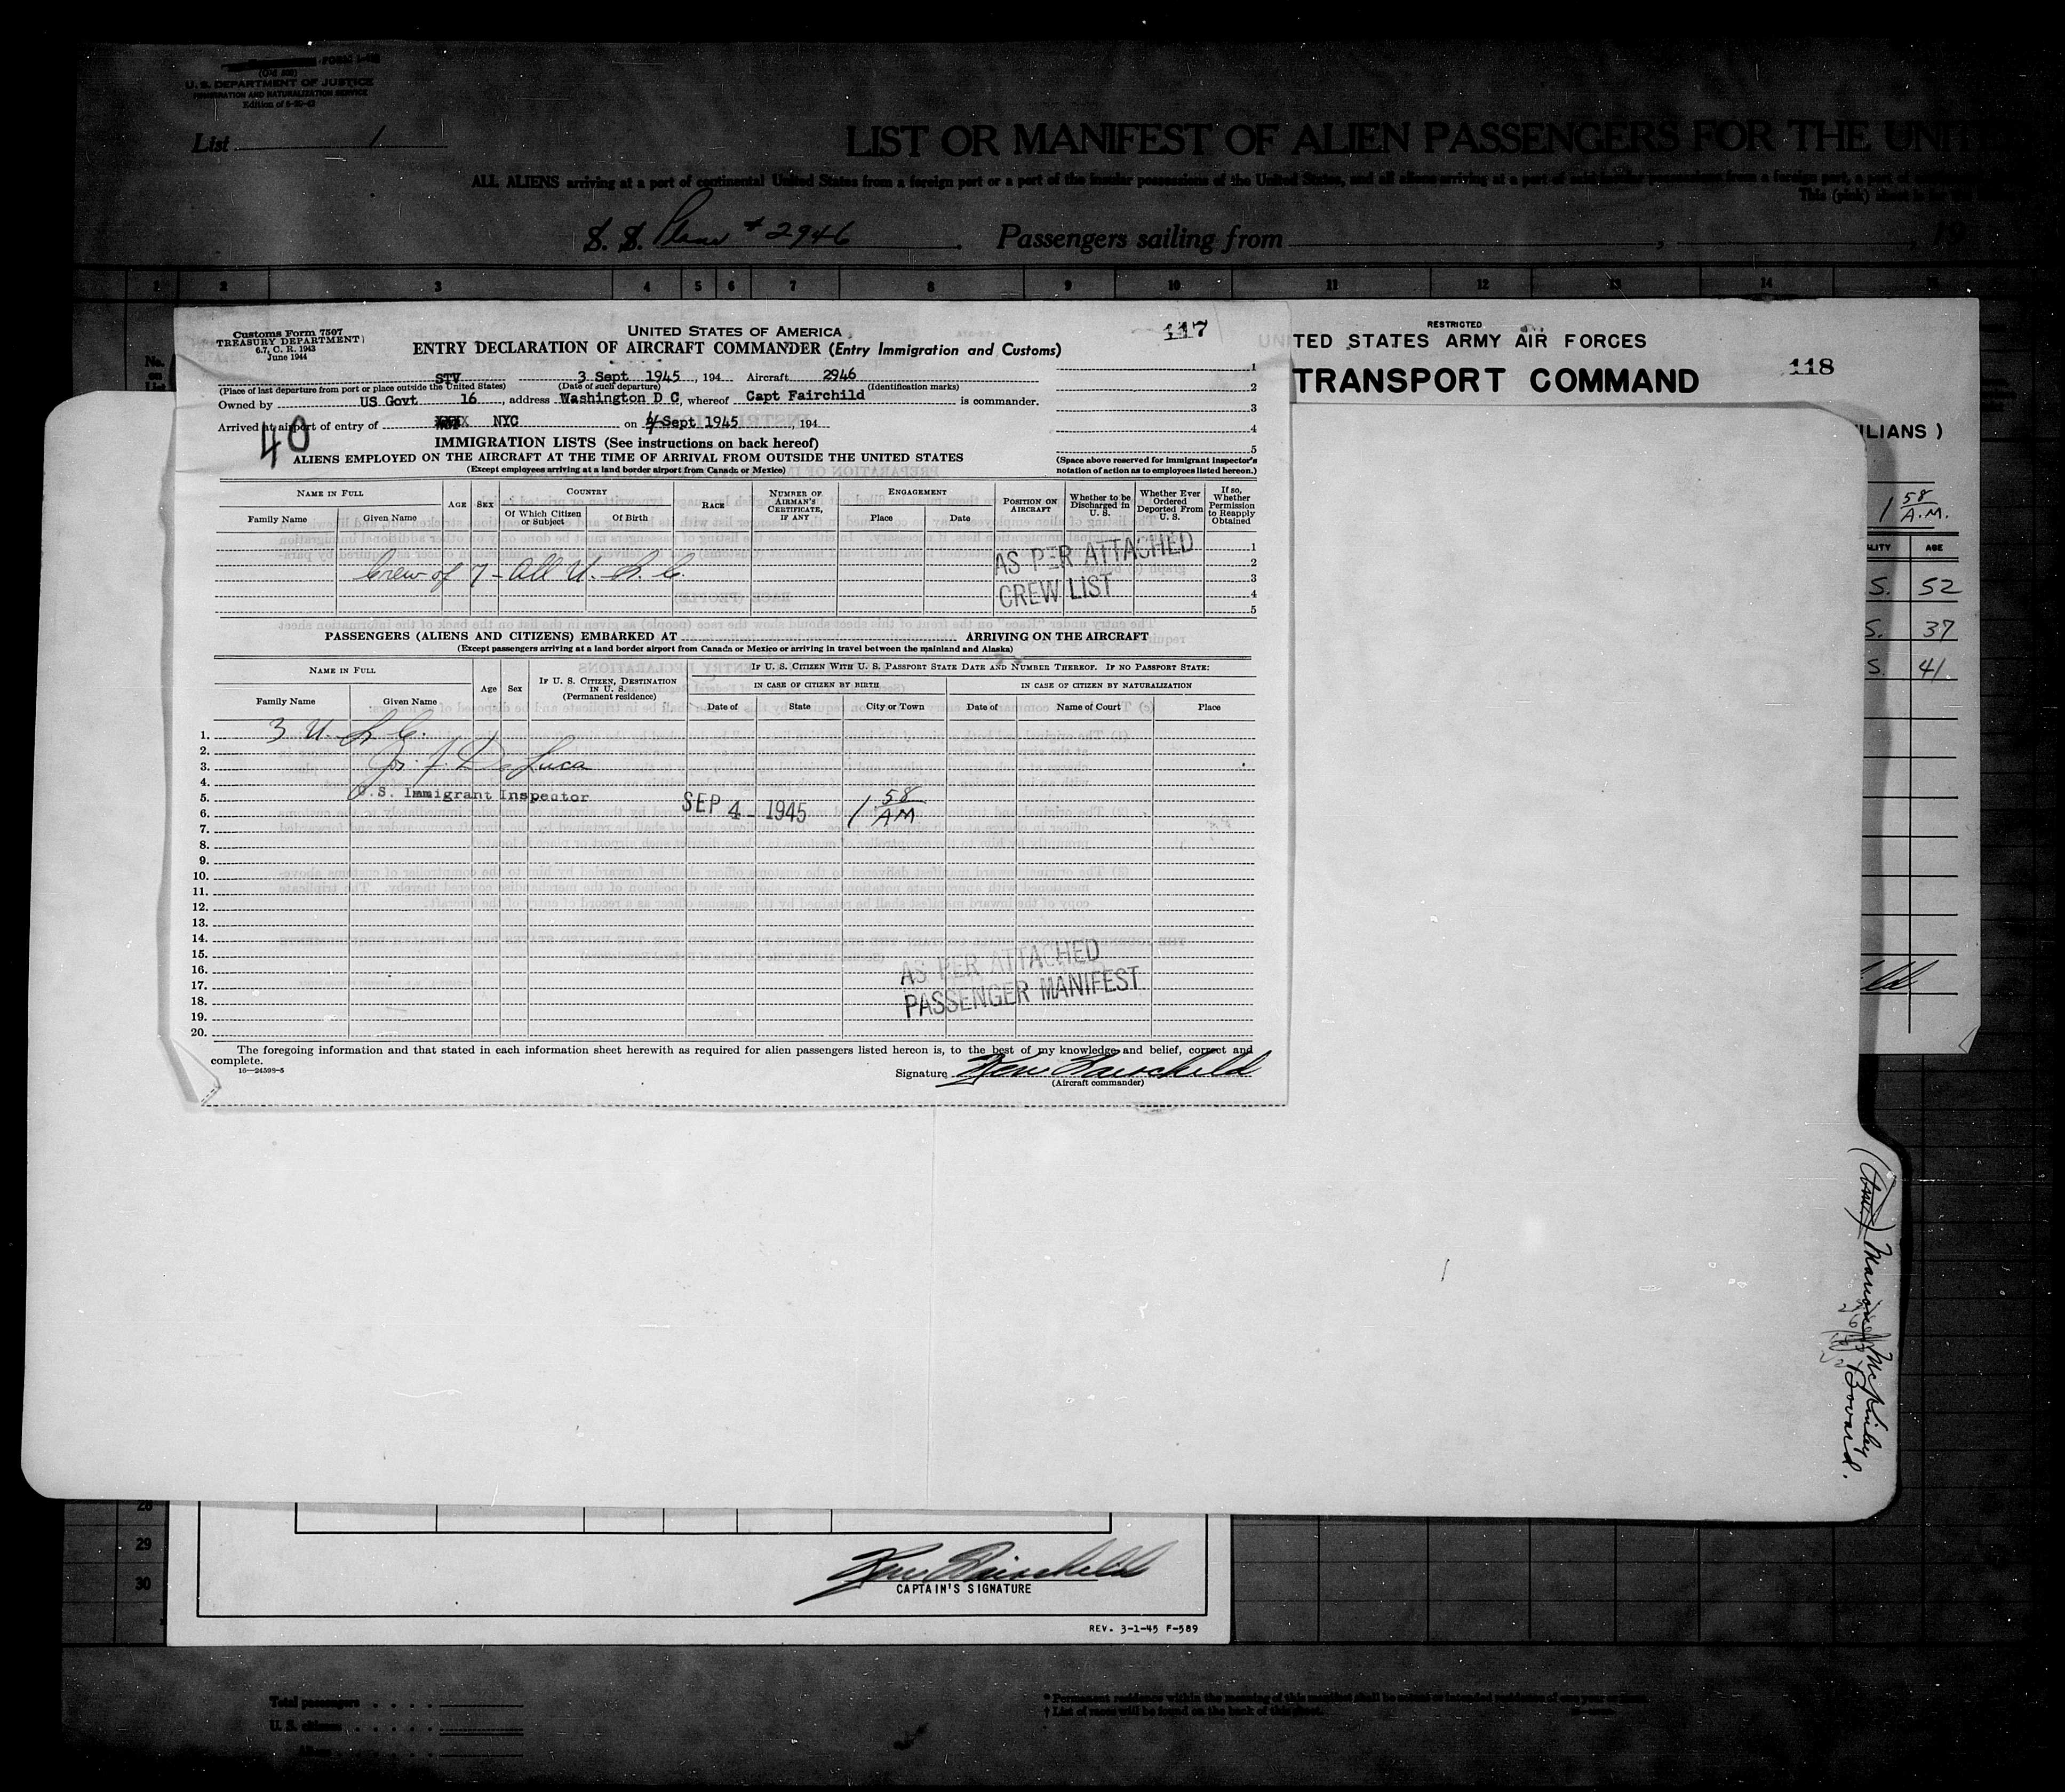 FORM I-415
U. S. DEPARTMENT OF JUSTICE
IMMIGRATION AND NATURALIZATION SERVICE
Edition of
List 1
LIST OR MANIFEST OF ALIEN PASSENGERS FOR THE UNIT
ALL ALIENS arriving at a port of continental United States from a foreign port or a port of the insular possessions of the United States, and all aliens arriving at a port of said insular possessions from a foreign port, a port of
This (pink) sheet is for the
S. S. Plane # 2946 . Passengers sailing from , , 19
1 2 3 4 5 6 7 8 9 10 11 12 13 14 15
No.
on
List
Customs Form 7507
TREASURY DEPARTMENT
6.7, C. R. 1943
June 1944
UNITED STATES OF AMERICA
117
ENTRY DECLARATION OF AIRCRAFT COMMANDER (Entry Immigration and Customs)
STV 3 Sept 1945, 194 Aircraft 2946
(Place of last departure from port or place outside the United States) (Date of such departure) (Identification marks)
Owned by US Govt 16, address Washington D C, whereof Capt Fairchild is commander.
Arrived at airport of entry of NYC on 4 Sept 1945 194
40
1
2
3
4
5
(Space above reserved for immigrant inspector's
notation of action as to employees listed hereon.)
IMMIGRATION LISTS (See instructions on back hereof)
ALIENS EMPLOYED ON THE AIRCRAFT AT THE TIME OF ARRIVAL FROM OUTSIDE THE UNITED STATES
(Except employees arriving at a land border airport from Canada or Mexico)
NAME IN FULL
Family Name Given Name
AGE SEX
COUNTRY
Of Which Citizen or Subject Of Birth
RACE
NUMBER OF AIRMAN'S CERTIFICATE, IF ANY
ENGAGEMENT
Place Date
POSITION ON AIRCRAFT
Whether to be Discharged in U. S.
Whether Ever Ordered Deported From U. S.
If so, Whether Permission to Reapply Obtained
1
2
3
4
5
Crew of 7 - All U. S. C.
AS PER ATTACHED
CREW LIST
PASSENGERS (ALIENS AND CITIZENS) EMBARKED AT ARRIVING ON THE AIRCRAFT
(Except passengers arriving at a land border airport from Canada or Mexico or arriving in travel between the mainland and Alaska)
NAME IN FULL
Family Name Given Name
Age Sex
IF U. S. CITIZEN, DESTINATION IN U. S. (Permanent residence)
IF U. S. CITIZEN WITH U. S. PASSPORT STATE DATE AND NUMBER THEREOF. IF NO PASSPORT STATE:
IN CASE OF CITIZEN BY BIRTH IN CASE OF CITIZEN BY NATURALIZATION
Date of State City or Town Date of Name of Court Place
1. 3 U. S. C.
2.
3. Jos. F. De Luca
4.
5. U.S. Immigrant Inspector
6. SEP 4 - 1945 1 58 AM
7.
8.
9.
10.
11.
12.
13.
14.
15.
16.
17.
18.
19.
20.
AS PER ATTACHED
PASSENGER MANIFEST
The foregoing information and that stated in each information sheet herewith as required for alien passengers listed hereon is, to the best of my knowledge and belief, correct and
complete.
16—24598-5
Signature Ken Fairchild
(Aircraft commander)
RESTRICTED
UNITED STATES ARMY AIR FORCES
TRANSPORT COMMAND
118
ILIANS )
1 58 A.M.
LITY AGE
S. 52
S. 37
S. 41
ild
Marion McKinley
Bovard.
28
29
30
Ken Fairchild
CAPTAIN'S SIGNATURE
REV. 3-1-45 F-589
Total passengers
U. S. citizens
Aliens
* Permanent residence within the meaning of this manifest shall be actual or intended residence of one year or more.
† List of races will be found on the back of this sheet.